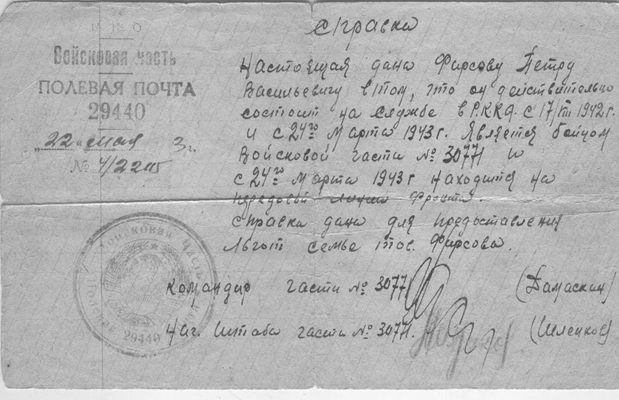 Справка
Войсковая часть
ПОЛЕВАЯ ПОЧТА
29440
"22" мая 3г.
№ 4/22
Настоящая дана Фирсову Петру
Васильевичу в том, что он действительно
состоит на службе в Р.К.К.А. с 17/ 1942г.
и с 24го Марта 1943г. Является бойцом
Войсковой части № 30771 и
с 24го Марта 1943г находится на
передовой линии фронта.
Справка дана для предоставления
Льгот семье тов. Фирсова.
Командир части № 30771 (Дамаскин)
Нач. Штаба части № 30771. (Шленков)
Войсковая часть
29440